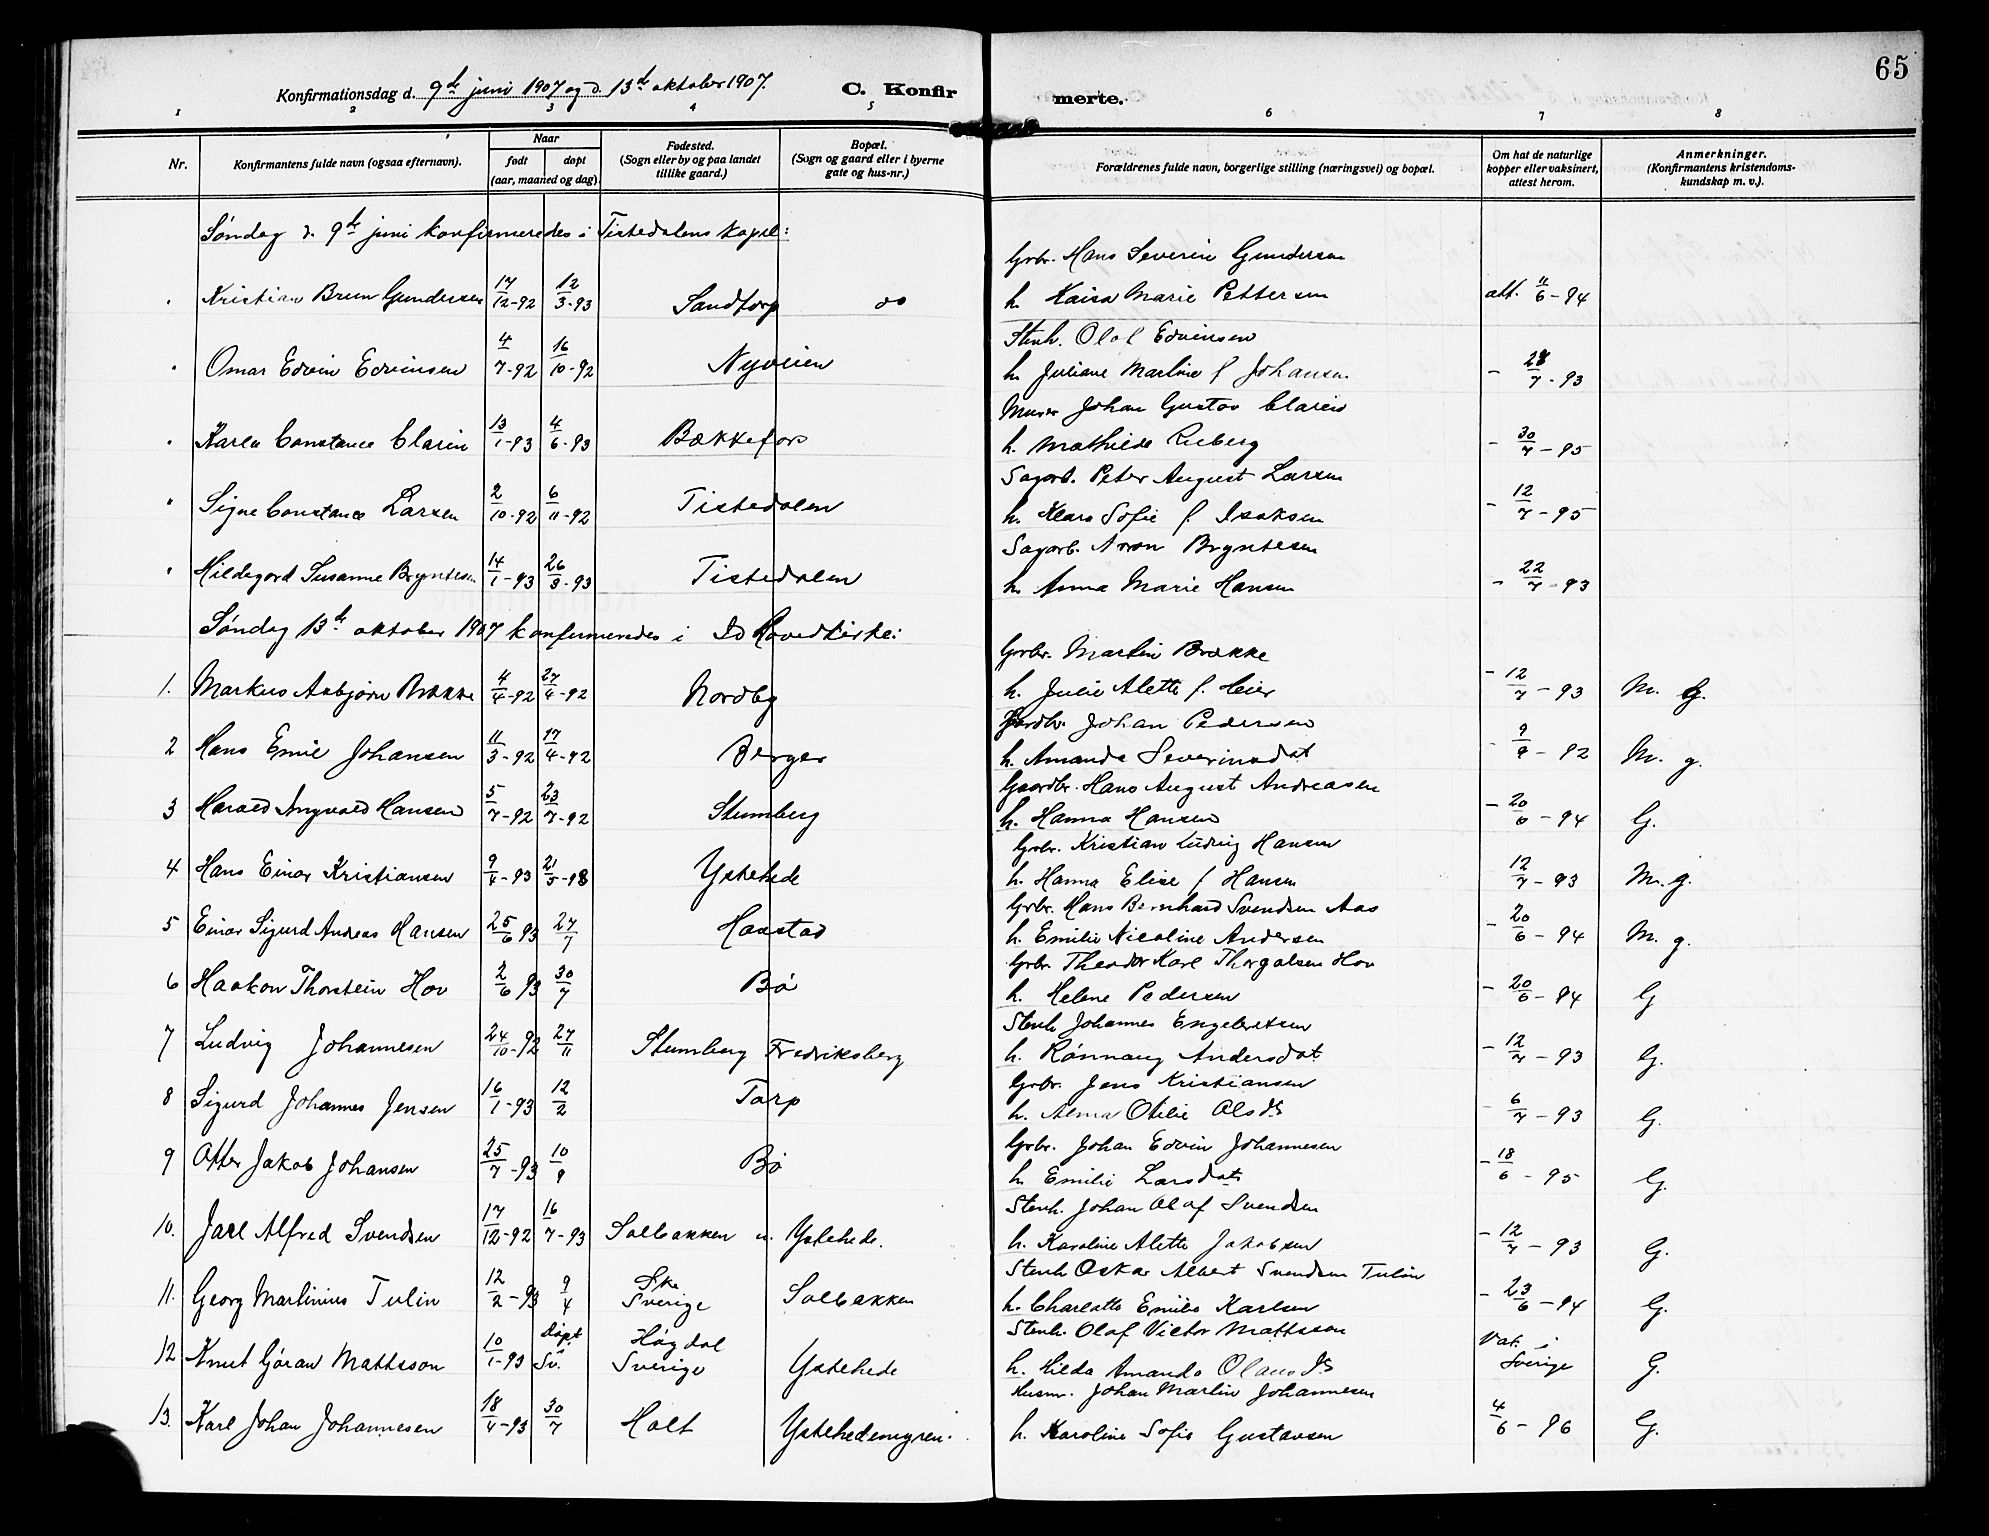 65
Konfirmationsdag d. 9de juni 1907 og d. 13de oktober 1907. C. Konfirmerte.
1 2 3 4 5 6 7 8
Nr. Konfirmantens fulde navn (ogsaa efternavn). Naar født døpt (aar, maaned og dag). Fødested. (Sogn eller by og paa landet tillike gaard.) Bopæl. (Sogn og gaard eller i byerne gate og hus-nr.) Forældrenes fulde navn, borgerlige stilling (næringsvei) og bopæl. Om hat de naturlige kopper eller vaksinert, attest herom. Anmerkninger. (Konfirmantens kristendoms-kundskap m. v.).
Søndag d. 9de juni konfirmeredes i Tistedalens kapel:
Grbr. Hans Severin Gundersen
" Kristian Brun Gundersen 17/12-92 12/3-93 Sandtorp h. Kaisa Marie Pettersen att. 11/6-94
Stenh. Olaf Edvinsen
" Omar Edvin Edvinsen 4/7-92 16/10-92 Nyveien h. Juliane Martine f. Johansen - 28/7-93
Murer Johan Gustav Clarin
" Karen Constance Clarin 13/1-93 4/6-93 Bækkefos h. Mathilde - 30/7-95
Sagarb. Peter August Larsen
" Signe Constance Larsen 2/10-92 6/11-92 Tistedalen h. Klara Sofie f. Isaksen - 12/7-95
Sagarb. Aron Bryntesen
" Hildegard Susanne Bryntesen 14/1-93 26/3-93 Tistedalen h. Anna Marie Hansen - 22/7-93
Søndag 13de oktober 1907 konfirmeredes i Id Hovedkirke:
Grbr. Martin Brække
1. Markus Asbjørn Brække 4/4-92 27/4-92 Nordby h. Julie Alette f. Heier - 12/7-93 M. G.
Jordbr. Johan Pedersen
2 Hans Emil Johansen 11/3-92 17/4-92 Berger h. Amanda Severinsdat - 9/9-92 M. g.
Gaardbr. Hans August Andreasen
3 Harald Ingvald Hansen 5/7-92 23/7-92 Stumberg h. Hanna Hansen - 20/6-94 G.
Grbr. Kristian Ludvig Hansen
4 Hans Einar Kristiansen 9/4-93 21/5-93 Ystehede h. Hanna Elise f. Hansen 12/7-93 M. g.
Grbr. Hans Bernhard Svendsen Aas
5 Einar Sigurd Andreas Hansen 25/6 93 27/7 Haastad h. Emilie Nicoline Andersen - 20/6-94 M. g.
Grbr. Theodor Karl Thorgalsen Hov
6 Haakon Thorstein Hov 2/6 93 30/7 Bø h. Helene Pedersen - 20/6-94 G
Stenh Johannes Engebretsen
7 Ludvig Johannesen 24/10-92 27/11 Stumberg Fredriksberg h. Rønnaug Andersdat - 12/7-93 G.
Grbr. Jens Kristiansen
8 Sigurd Johannes Jensen 16/1-93 12/2 Torp h. Alma Otilie Olsdt - 6/7-93 G.
Grbr. Johan Edvin Johannesen
9 Otter Jakob Johansen 25/7-93 10/9 Bø h. Emilie Larsdat - 18/6-95 G.
Stenh. Johan Olaf Svendsen
10. Jarl Alfred Svendsen 17/12-92 16/7-93 Solbakken u. Ystehede. h. Karoline Alette Jakobsen - 12/7-93 G.
Stenh Oskar Albert Svendsen Tulin
11. Georg Martinius Tulin 12/2-93 9/4 Sverige Solbakken h. Charlotte Emilie Karlsen - 23/6-94 G.
Stenh. Olaf Victor Mattsson
12 Knut Gøran Mattsson 10/1-93 døpt Sv. Høgdal Sverige Ystehede h. Hilda Amanda Olausdt Vak. i Sverige G.
Husm. Johan Martin Johannesen
13. Karl Johan Johannesen 18/4-93 30/7 Holt Ystehedemyren. h. Karoline Sofie Gustavsen 4/6-96 G.